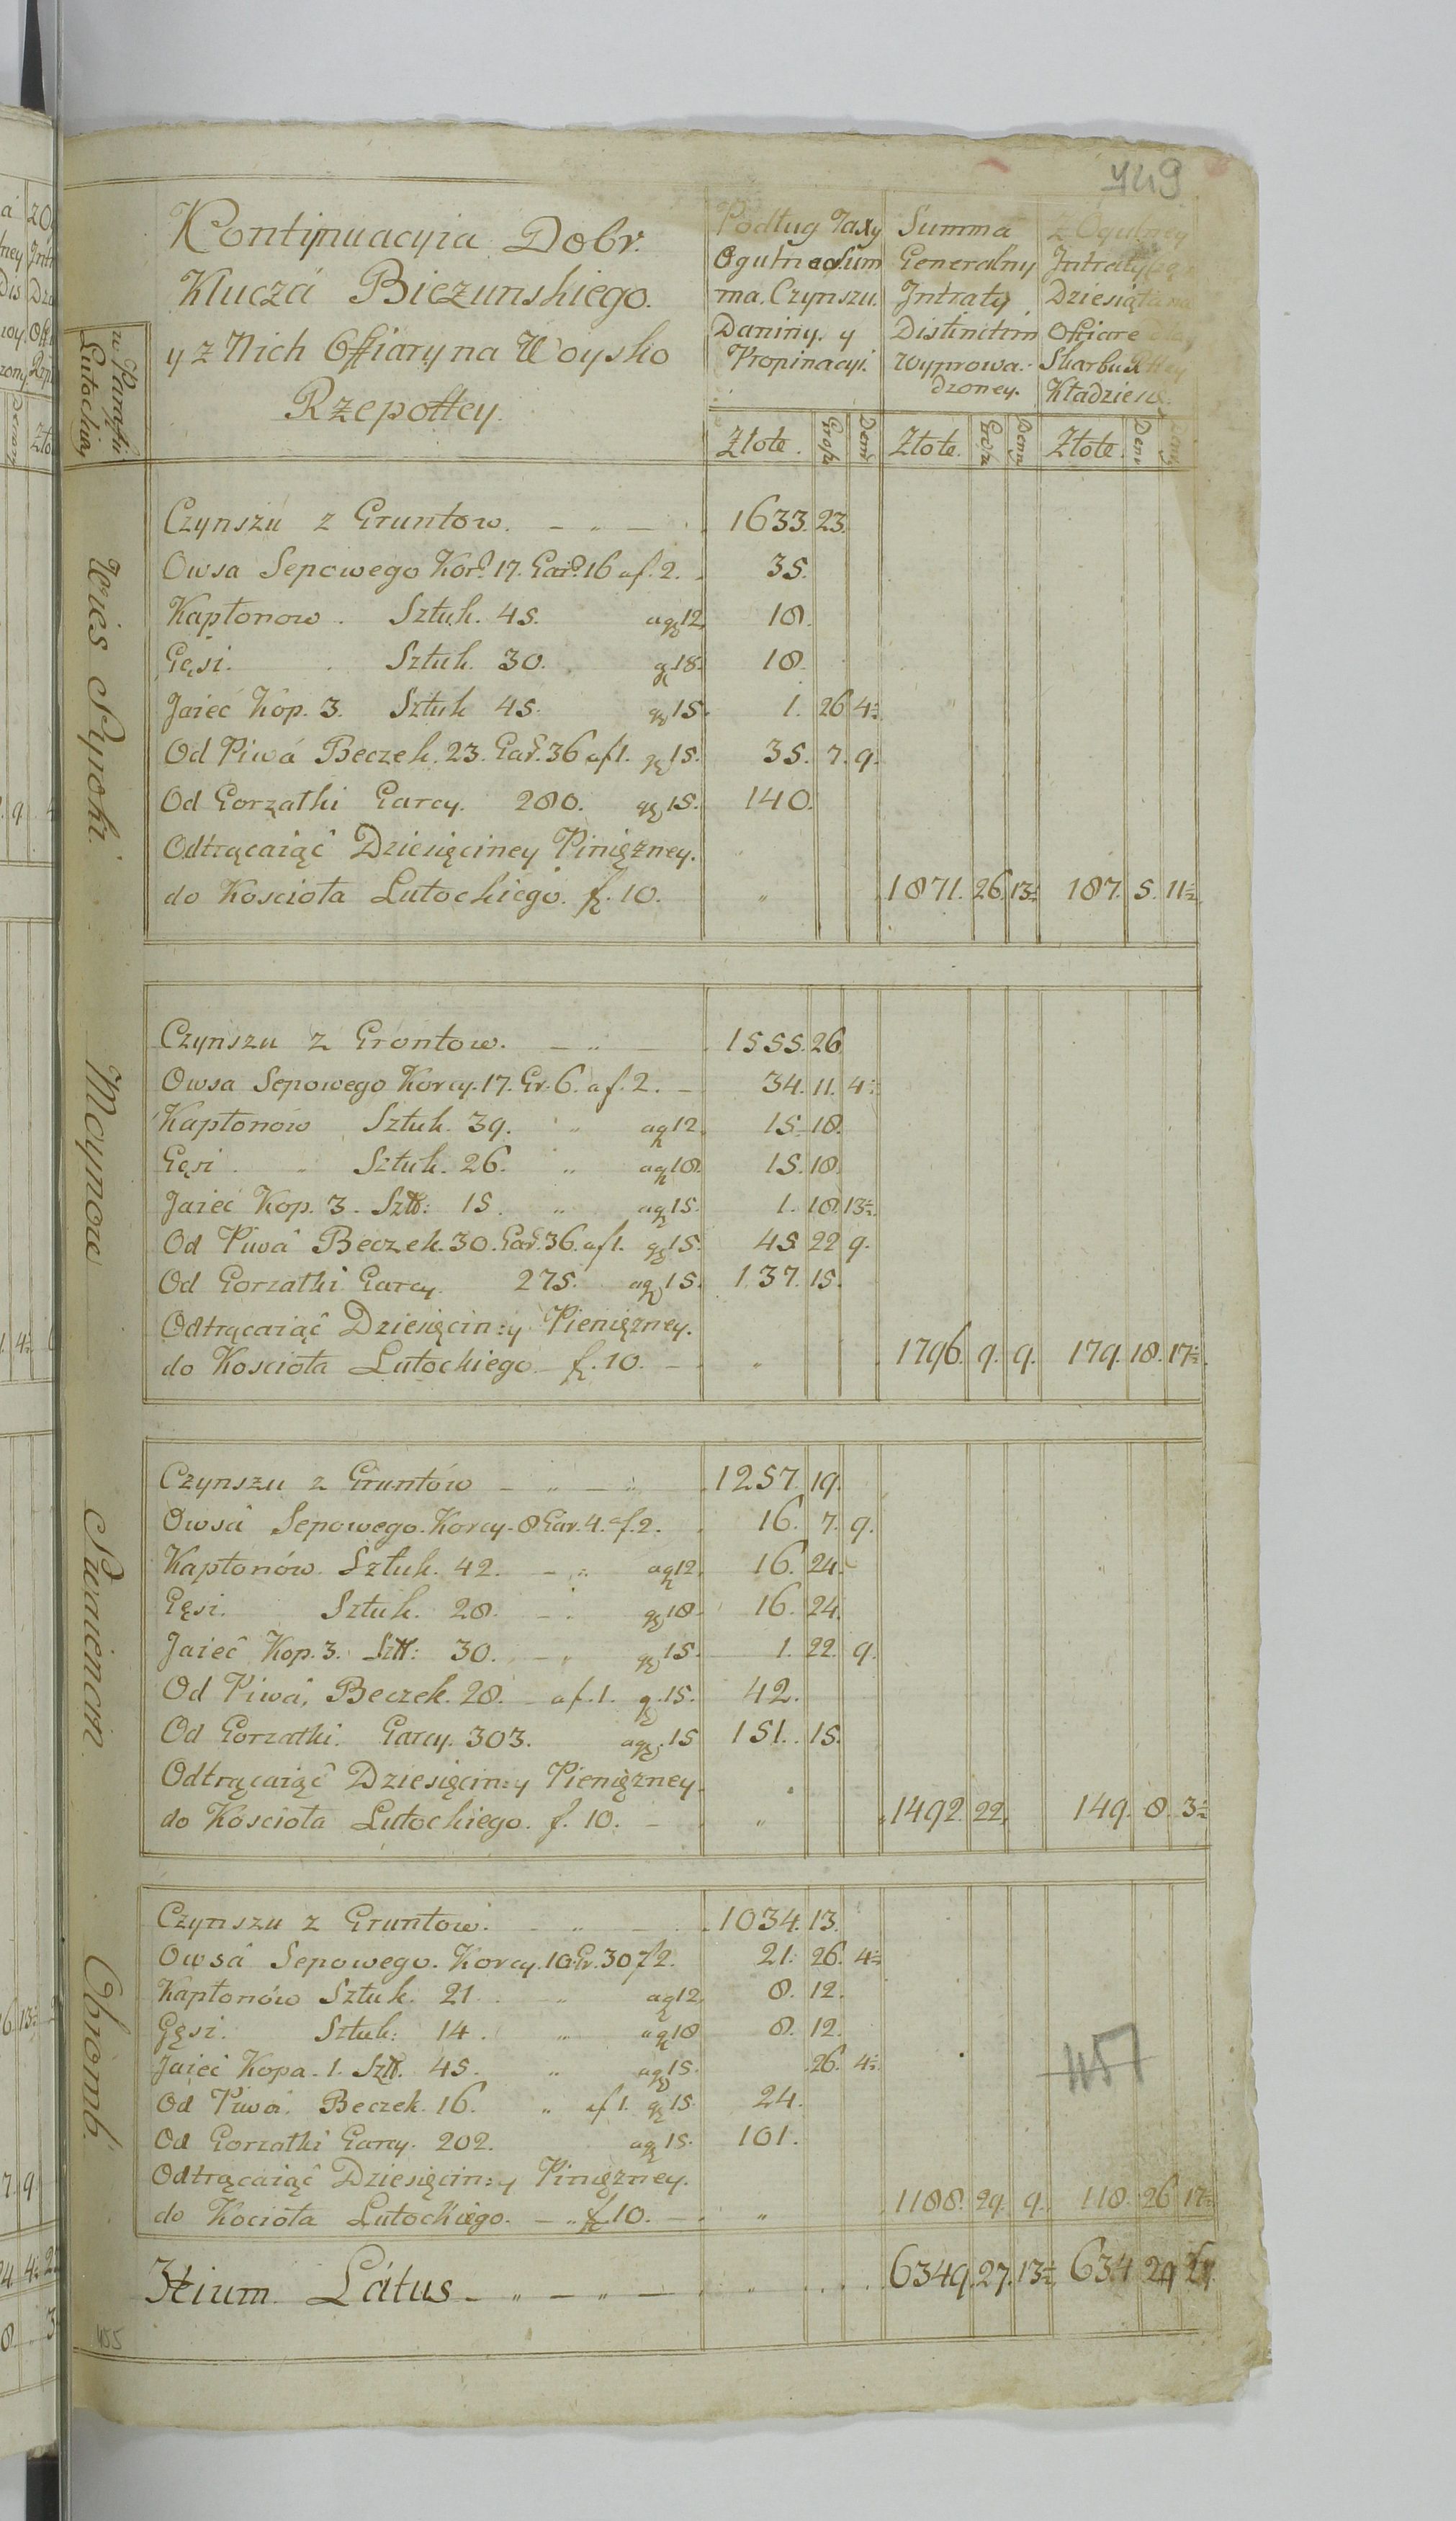 749
Kontynuacyia Dobr.
Kluczá Biezunskiego.
y z Nich Offiary na Woysko
Rzepottey.
w Parafii
Lutockiey
Podług Taxy
Ogulne Sum
ma. Czynszu.
Daniny. y
Propinacyi.
Summa
Generalny
Jntraty
Distinctim
Wyprowa.
dzoney.
Z Ogulney
Jntraty
Dziesiąta
Offiare
Skarbu
Kładzie
Złote. Grosze Den
Złote. Grosze Dena
Złote. Den
Wies Syroki.
Czynszu z Gruntow. — „ — 1633. 23.
Owsa Sepowego Kor. 17. Gar. 16 af. 2. 35.
Kapłonow. Sztuk. 45. agr 12. 18.
Gęsi. Sztuk. 30. gr 18. 18.
Jaieć Kop. 3. Sztuk 45. gr 15. 1. 26 4½
Od Piwá Beczek. 23. Gar. 36 af 1. gr 15. 35. 7. 9.
Od Gorzałki Garcy. 280. gr 15. 140.
Odtrącaiąć Dziesięciney Piniężney.
do Kościoła Lutockiego. f. 10. „ 1871. 26. 13½ 187. 5. 11½
Moynowo
Czynszu z Grontow. — „ — 1555. 26
Owsa Sepowego Korcy. 17. Gr. 6. af. 2. — 34. 11. 4½
Kapłonow Sztuk. 39. „ agr 12. 15. 18.
Gęsi. „ Sztuk. 26. „ agr 18. 15. 18.
Jaieć Kop. 3. Szt: 15. „ agr 15. 1. 18. 13½.
Od Piwá Beczek. 30. Gar. 36. af 1. gr 15. 45. 22 9.
Od Gorzałki Garcy. 275. agr 15. 137. 15.
Odtrącaiąć Dziesięcin:y Pieniężney.
do Kościoła Lutockiego — f. 10. — „ 1796. 9. 9. 179. 18. 17½.
Czynszu z Gruntów — „ — „ 1257. 19.
Owsá Sepowego. Korcy. 8 Gar. 4. af. 2. 16. 7. 9.
Kapłonów. Sztuk. 42. — „ agr 12. 16. 24.
Gęsi. Sztuk. 28. — „ gr 18. 16. 24.
Jaieć Kop. 3. Szt: 30. — „ gr 15. 1. 22. 9.
Od Piwá, Beczek. 28. — af. 1. gr. 15. 42.
Od Gorzałki. Garcy. 303. agr. 15 151. 15.
Odtrącaiąć Dziesięcin:y Pieniężney.
do Kościoła Lutockiego. f. 10. — „ 1492. 22. 149. 8. 3½
Czynszu z Gruntow. — „ — 1034. 13.
Owsá Sepowego. Korcy. 10. Gr. 30 f 2. 21. 26. 4½
Kapłonów Sztuk. 21. „ agr 12. 8. 12.
Gęsi. Sztuk: 14. „ agr 18 8. 12.
Jaieć Kopa. 1. Szt. 45. „ agr 15. 26. 4½
Od Piwá. Beczek. 16. „ af 1. gr 15. 24.
Od Gorzałki Garcy. 202. agr 15. 101.
Odtrącaiąć Dziesięcin:y Piniężney.
do Kocioła Lutockiego. — „ f. 10. — „ 1188. 29. 9. 118. 26 17½
457
3tium Látus — „ — „ — „ 6349. 27. 13½ 634 29
455